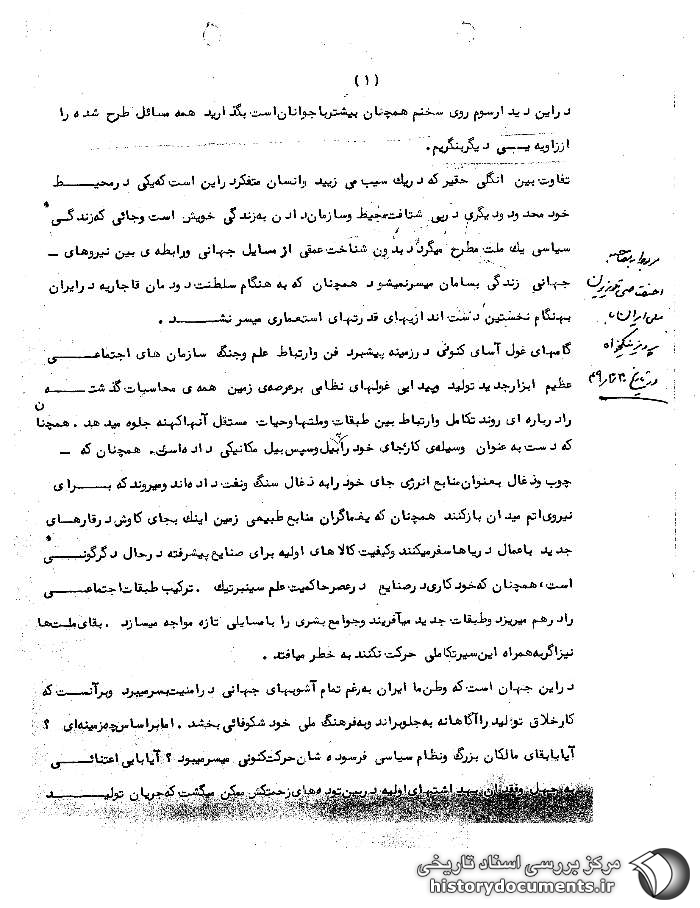 (١)
در این دیدار سوم روی سخنم همچنان بیشتر با جوانان است بگذارید همه مسائل طرح شده را
از زاویه یی دیگر بنگریم.
تفاوت بین انگلی حقیر که در یك سیب می زیید و انسان متفکر در این است که یکی در محیط
خود محدود و دیگری در پی شناخت محیط و سازمان دادن به زندگی خویش است و جائی که زندگی
سیاسی یك ملت مطرح میگردد بدون شناخت عمقی از مسایل جهانی و رابطه ی بین نیروهای
جهانی زندگی بسامان میسر نمیشود همچنان که به هنگام سلطنت دودمان قاجاریه در ایران
بهنگام نخستین دست اندازیهای قدرتهای استعماری میسر نشد.
گامهای غول آسای کنونی در زمینه پیشبرد فن و ارتباط علم و جنگ سازمان های اجتماعی
عظیم ابزار جدید تولید و پیدایی غولهای نظامی بر عرصه ی زمین همه ی محاسبات گذشته
را در باره ای روند تکامل و ارتباط بین طبقات و ملتها و حیات مستقل آنها کهنه جلوه میدهد. همچنان
که دست به عنوان وسیله ی کار جای خود را به بیل و سپس بیل مکانیکی داده است. همچنان که
چوب و ذغال بعنوان منابع انرژی جای خود را به ذغال سنگ و نفت داده اند و میروند که برای
نیروی اتم میدان باز کنند همچنان که یغماگران منابع طبیعی زمین اینك بجای کاوش در قاره های
جدید باعمال دریاها سفر میکنند و کیفیت کالاهای اولیه برای صنایع پیشرفته در حال دگرگونی
است، همچنان که خودکاری در صنایع در عصر حاکمیت علم سیبرنتیك. ترکیب طبقات اجتماعی
را در هم میریزد و طبقات جدید میآفریند و جوامع بشری را با مسایلی تازه مواجه میسازد. بقای ملتها
نیز اگر به همراه این سیر تکاملی حرکت نکنند به خطر میافتد.
در این جهان است که وطن ما ایران به رغم تمام آشوبهای جهانی در امنیت بسر میبرد و بر آنست که
کار خلاق تولید را آگاهانه به جلو براند و به فرهنگ ملی خود شکوفائی بخشد. اما بر اساس چه زمینه ای ؟
آیا با بقای مالکان بزرگ و نظام سیاسی فرسوده شان حرکت کنونی میسر میبود ؟ آیا با بی اعتنائی
به جهل و فقدان بهداشتهای اولیه در بین توده های زحمتکش ممکن میگشت که جریان تولید
مرکز بررسی اسناد تاریخی
historydocuments.ir